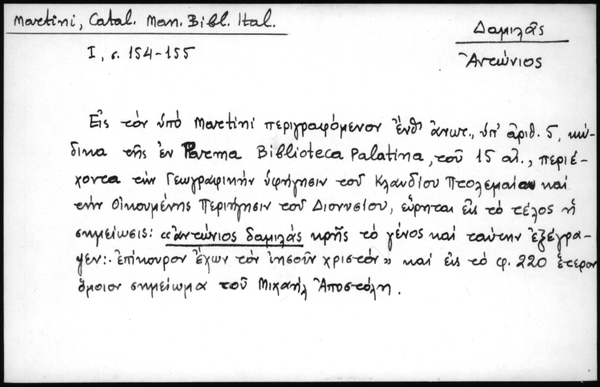 Martini, Catal. Man. Bibl. Ital.
I, σ. 154-155
Δαμιλᾶς
Ἀντώνιος
Εἰς τὸν ὑπὸ Martini περιγραφόμενον ἔνθ' ἀνωτ., ὑπ' ἀριθ. 5, κώ-
δικα τῆς ἐν Parma Biblioteca Palatina, τοῦ 15 αἰ., περιέ-
χοντα τὴν Γεωγραφικὴν ὑφήγησιν τοῦ Κλαυδίου Πτολεμαίου καὶ
τὴν Οἰκουμένης Περιήγησιν τοῦ Διονυσίου, εὕρηται εἰς τὸ τέλος ἡ
σημείωσις: «ἀντώνιος δαμιλάς κρῆς τὸ γένος καὶ ταύτην ἐξέγρα-
ψεν:· ἐπίκουρον ἔχων τὸν ἰησοῦν χριστόν» καὶ εἰς τὸ φ. 220 ἕτερον
ὅμοιον σημείωμα τοῦ Μιχαὴλ Ἀποστόλη.